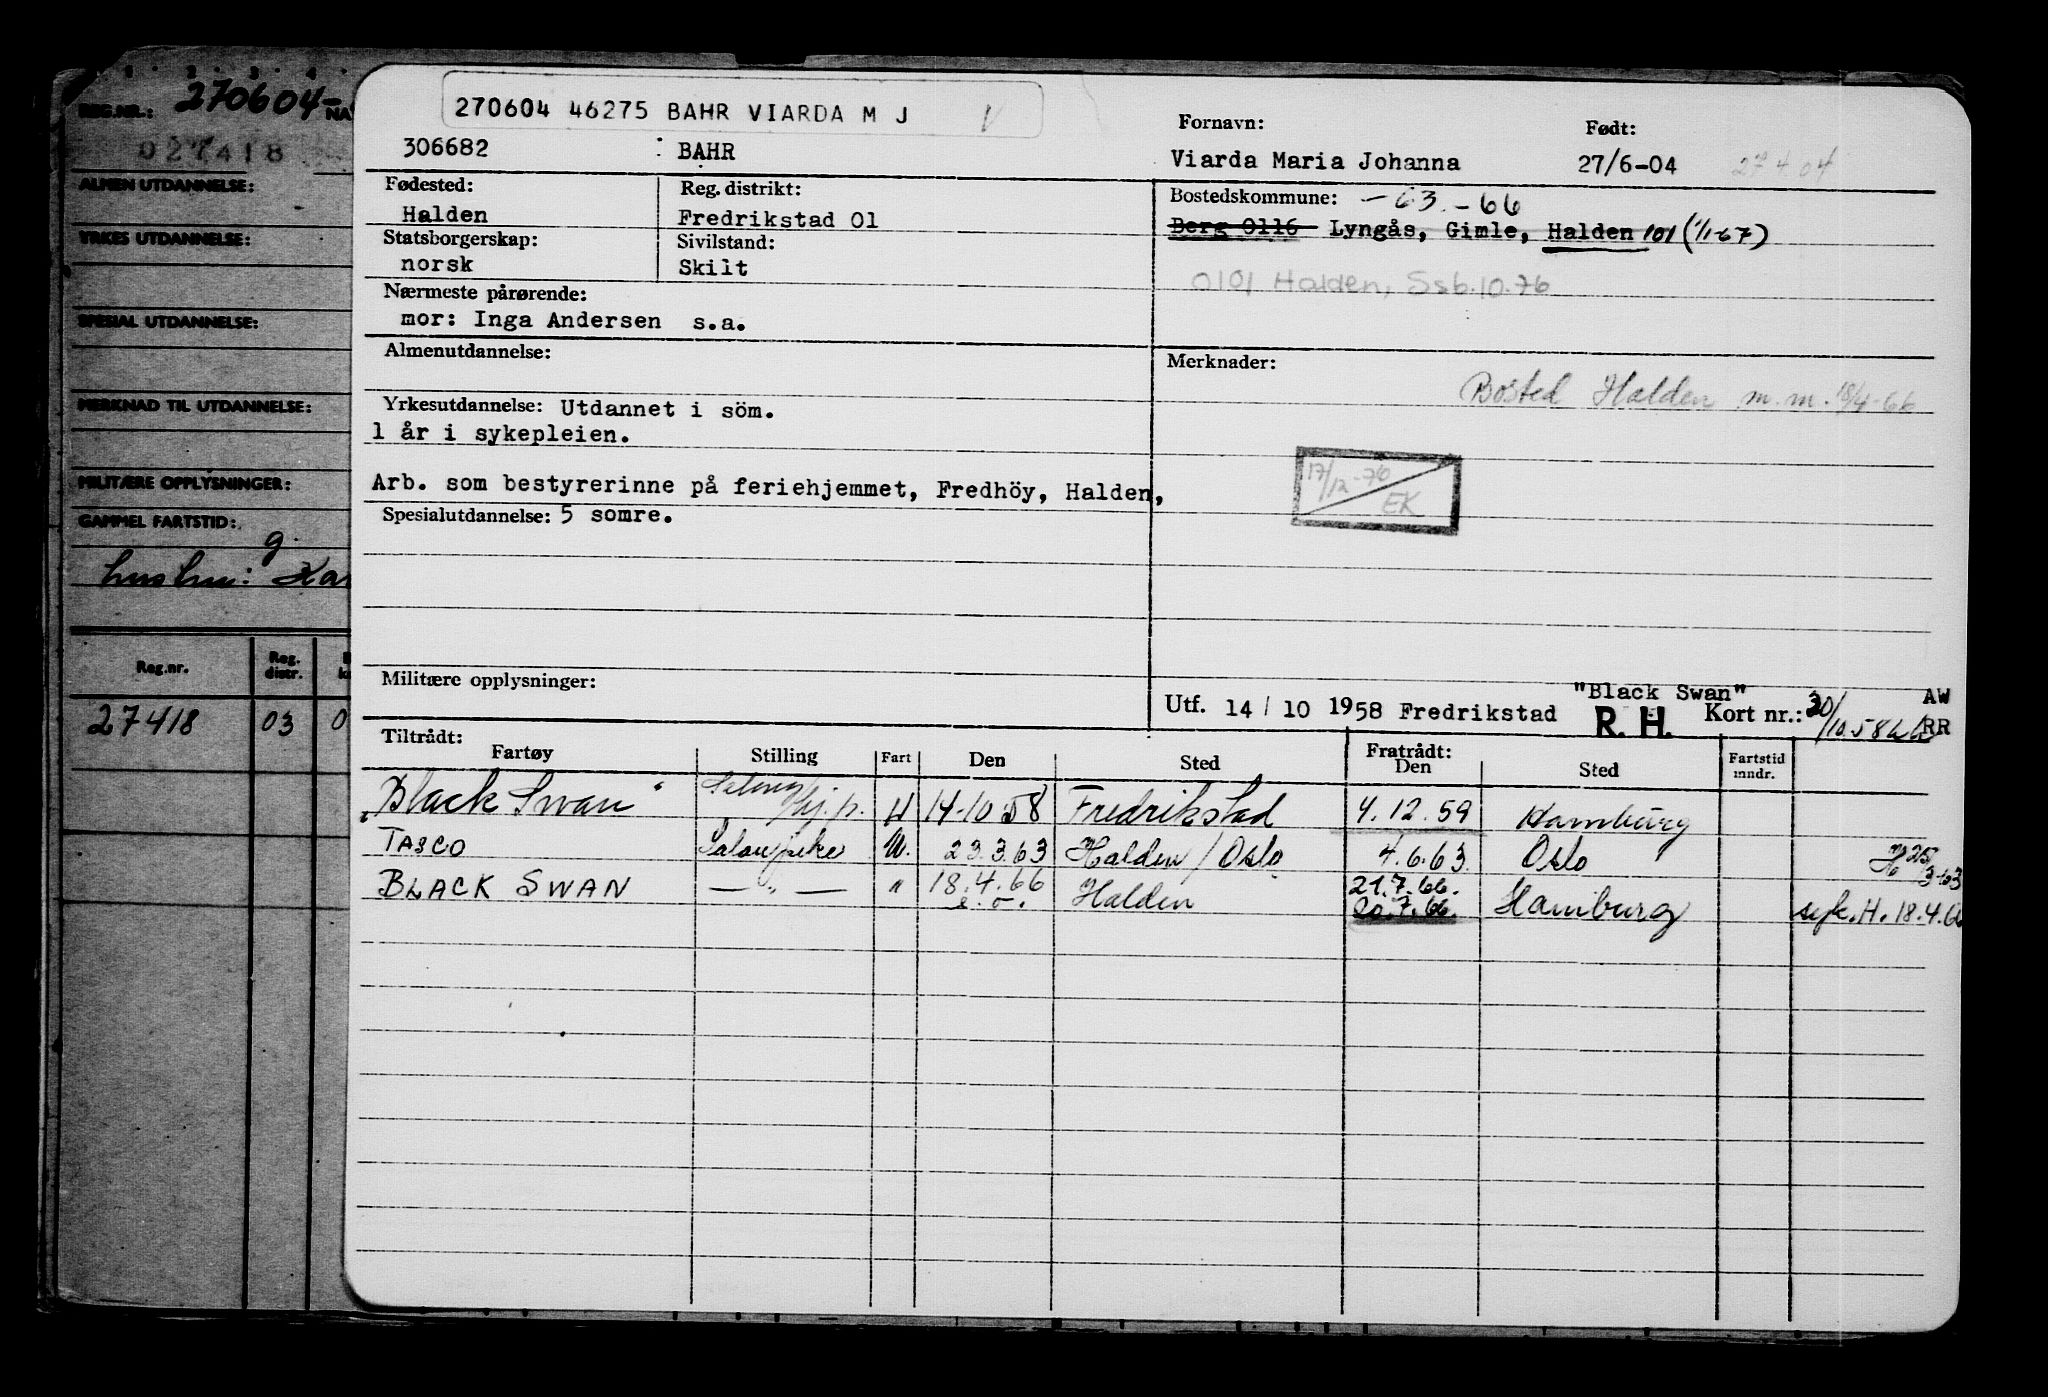 1 2 3 4
REG.NR.: 270604- NA
027418
ALMEN UTDANNELSE:
YRKES UTDANNELSE:
SPESIAL UTDANNELSE:
MERKNAD TIL UTDANNELSE:
MILITÆRE OPPLYSNINGER:
GAMMEL FARTSTID:
g.
Reg.nr. Reg. distr.
27418 03 0
270604 46275 BAHR VIARDA M J V
306682 BAHR
Fornavn: Født:
Viarda Maria Johanna 27/6-04 27.4.04
Fødested: Reg. distrikt:
Halden Fredrikstad 01
Statsborgerskap: Sivilstand:
norsk Skilt
Bostedskommune: -63.-66
Berg 0116 Lyngås, Gimle, Halden 101 (1/1-67)
0101 Halden, Ssb.10.76
Nærmeste pårørende:
mor: Inga Andersen s.a.
Almenutdannelse:
Merknader:
Bosted Halden m.m. 18/4-66
Yrkesutdannelse: Utdannet i söm.
1 år i sykepleien.
17/12-76
EK
Arb. som bestyrerinne på feriehjemmet, Fredhöy, Halden,
Spesialutdannelse: 5 somre.
Militære opplysninger:
"Black Swan" AW
Utf. 14/10 1958 Fredrikstad R. H. Kort nr.: 30/10.58 RR
Tiltrådt: Fratrådt:
Fartøy Stilling Fart Den Sted Den Sted Fartstid mndr.
"Black Swan" 14-10-58 Fredrikstad 4.12.59 Hamburg
TASCO Salonpike U. 23.3.63 Halden / Oslo 4.6.63 Oslo H 25/3-63
BLACK SWAN — " — " 18.4.66 Halden 21.7.66. Hamburg H. 18.4.66
20.7.66.